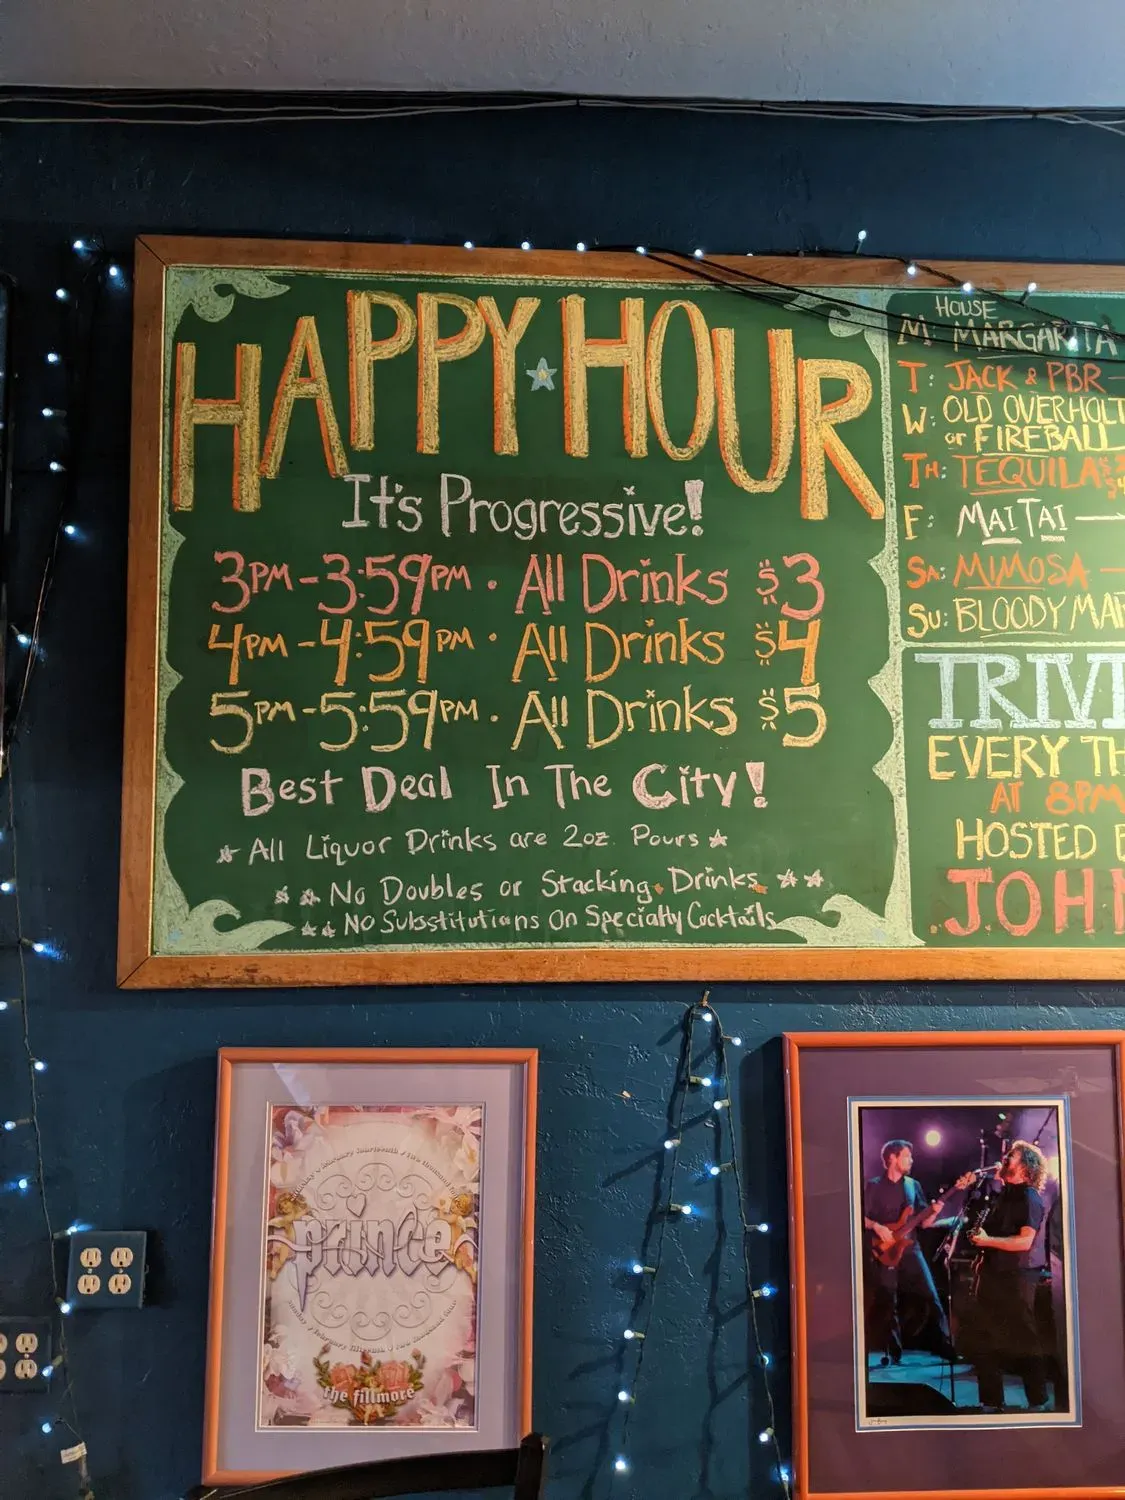 HAPPY HOUR
It's Progressive!
3PM-3:59PM · All Drinks $3
4PM-4:59PM · All Drinks $4
5PM-5:59PM · All Drinks $5
Best Deal In The City!
All Liquor Drinks are 2oz. Pours
No Doubles or Stacking Drinks
No Substitutions On Specialty Cocktails
HOUSE
M: MARGARITA
T: JACK & PBR
W: OLD OVERHOLT
or FIREBALL
TH: TEQUILA
F: MAI TAI
SA: MIMOSA
SU: BLOODY MAR
TRIVI
EVERY TH
AT 8PM
HOSTED B
JOHN
prince
the fillmore